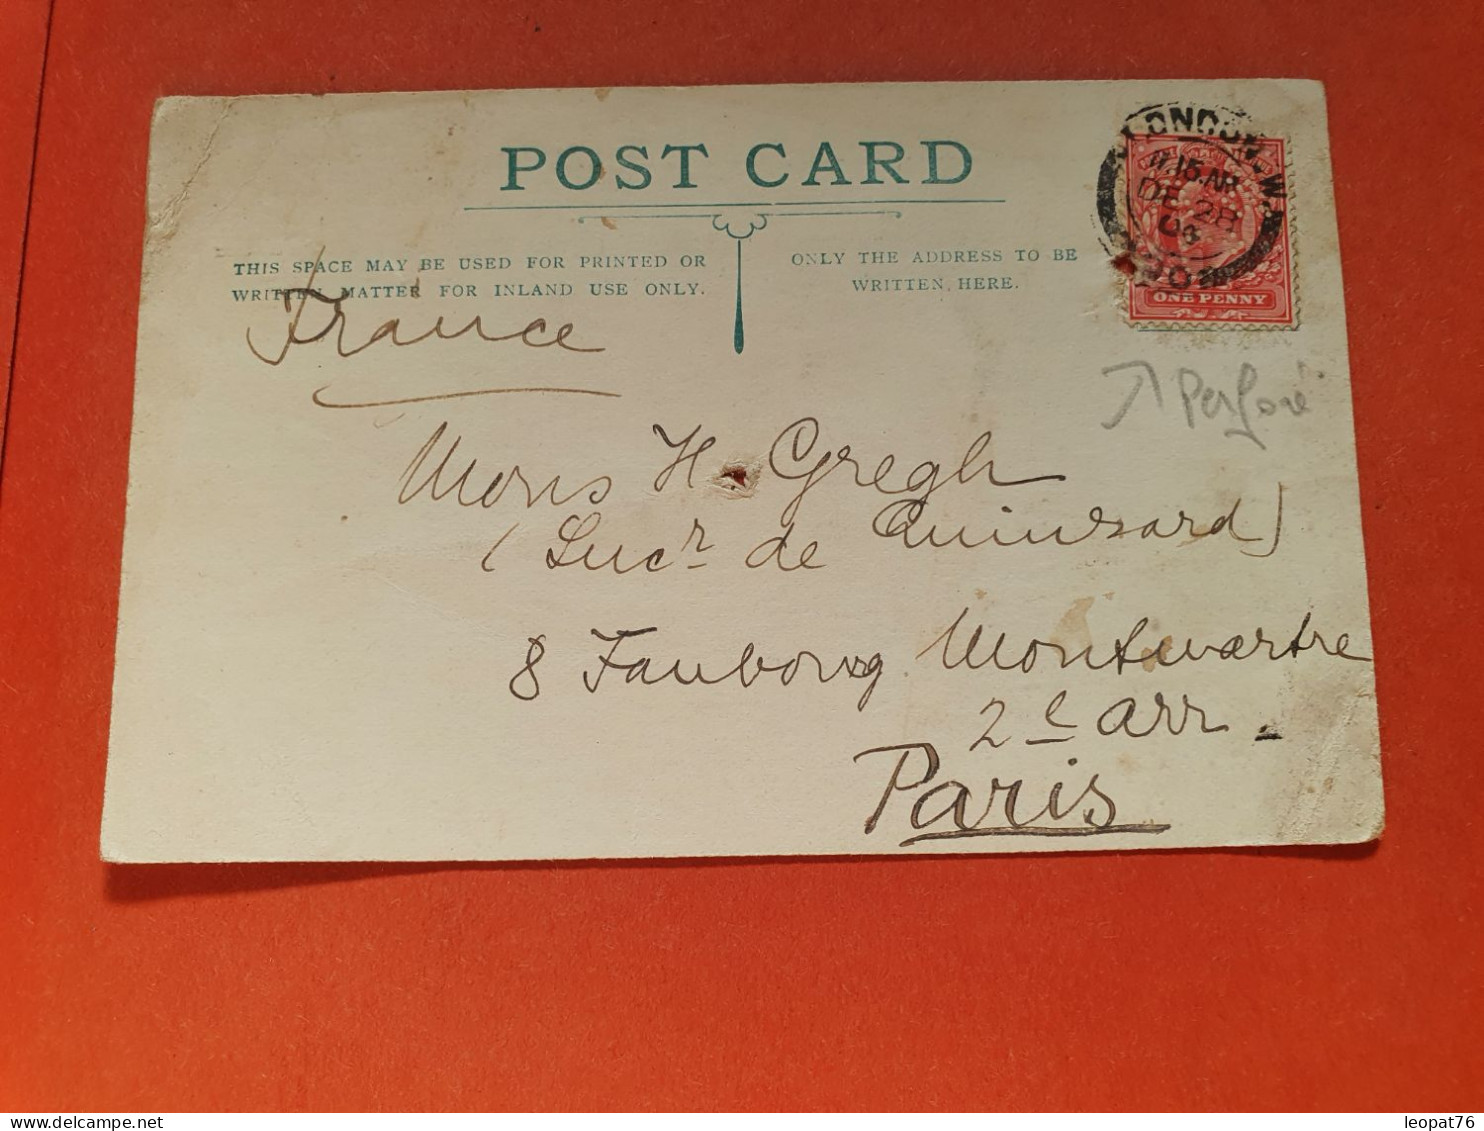 POST CARD
THIS SPACE MAY BE USED FOR PRINTED OR
WRITTEN MATTER FOR INLAND USE ONLY.
ONLY THE ADDRESS TO BE
WRITTEN HERE.
LONDON.W.
11.15 AM
DE 28
04
ONE PENNY
Perforé
France
Mons H. Gregh
(Sucr de Quinzard)
8 Faubourg Montmartre
2e arr.
Paris
leopat76